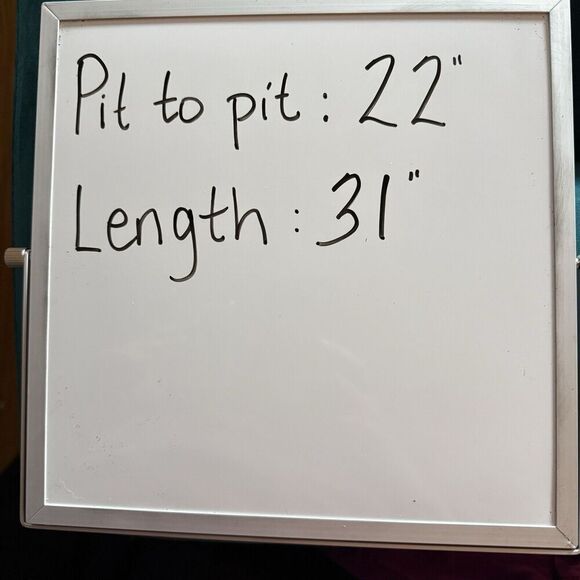 Pit to pit : 22"
Length : 31"